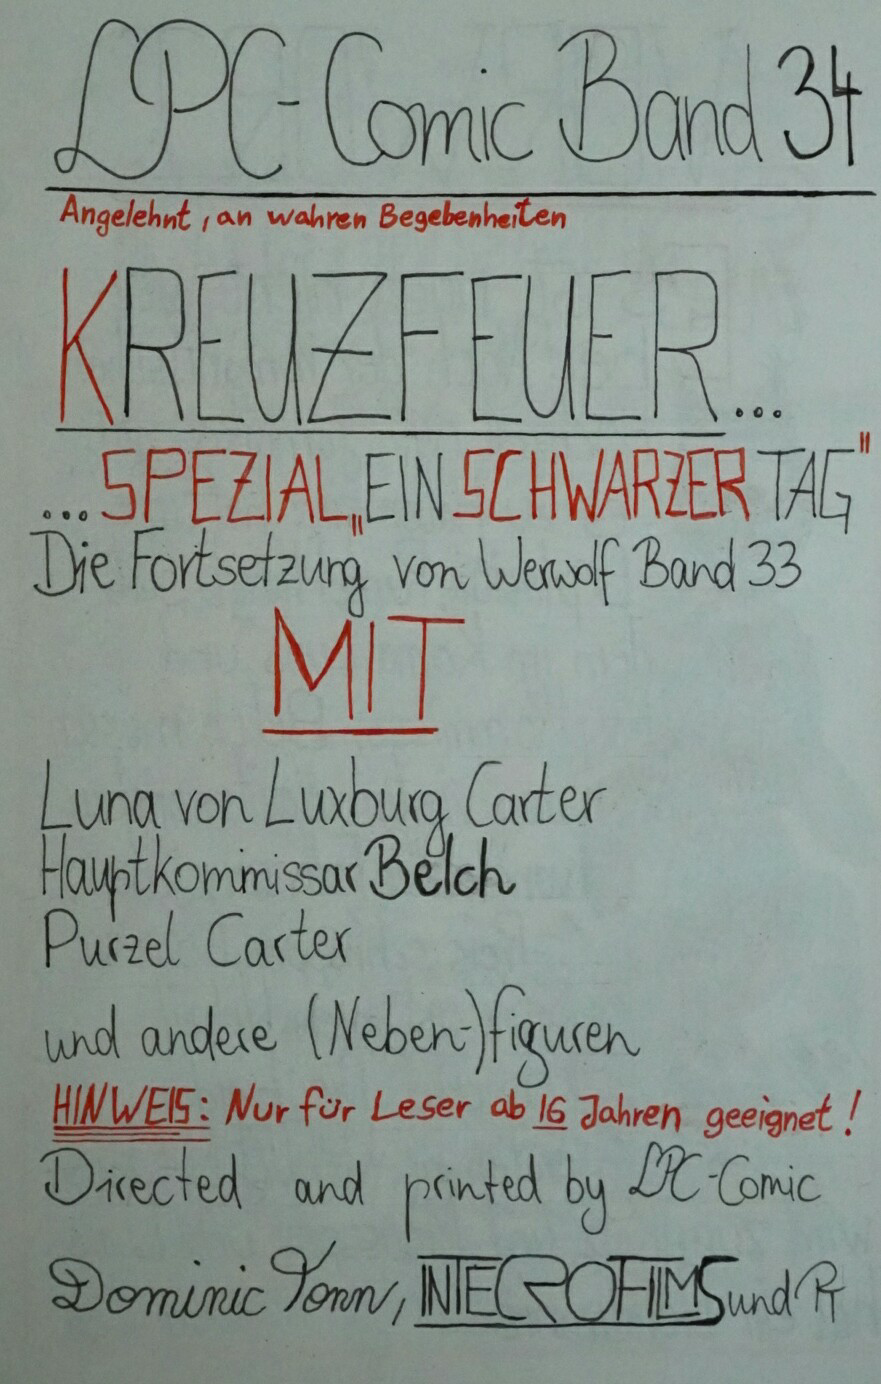 LPC-Comic Band 34
Angelehnt, an wahren Begebenheiten
KREUZFEUER...
...SPEZIAL „EIN SCHWARZER TAG"
Die Fortsetzung von Werwolf Band 33
MIT
Luna von Luxburg Carter
Hauptkommissar Belch
Purzel Carter
und andere (Neben-)figuren
HINWEIS: Nur für Leser ab 16 Jahren geeignet!
Directed and printed by LPC-Comic
Dominic Tonn, INTECROFILMS und PT